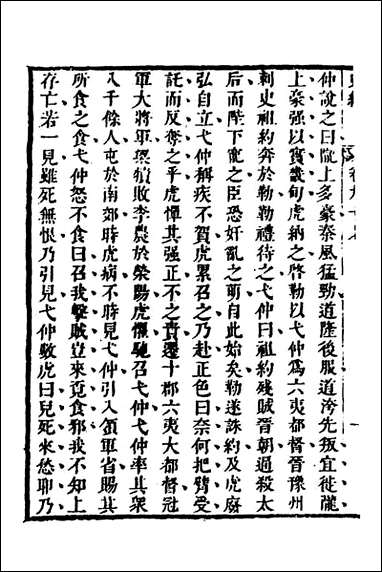 仲說之曰隴上多豪秦風猛勁道隆後服道洿先叛宜徙隴
上豪强以實畿甸虎納之啓勒以弋仲爲六夷都督晉豫州
刺史祖約奔於勒勒禮待之弋仲曰祖約殘賊晉朝逼殺太
后而陛下寵之臣恐奸亂之萌自此始矣勒遂誅約及虎廢
弘自立弋仲稱疾不賀虎累召之乃赴正色曰奈何把臂受
託而反奪之乎虎憚其强正不之責遷十郡六夷大都督冠
軍大將軍梁犢敗李農於滎陽虎懼馳召弋仲弋仲率其衆
八千餘人屯於南郊時虎病不時見弋仲引入領軍省賜其
所食之食弋仲怒不食曰召我擊賊豈來覓食邪我不知上
存亡若一見雖死無恨乃引見弋仲數虎曰兒死來愁聊乃